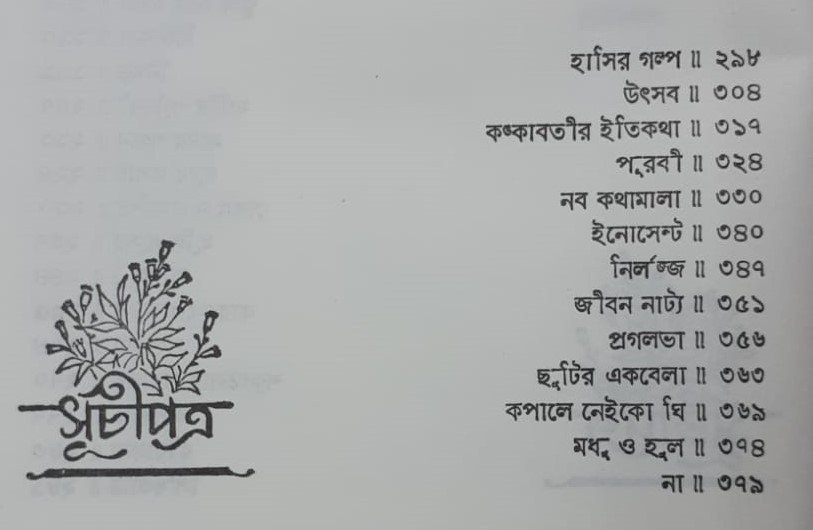 হাসির গল্প ॥ ২৯৮
উৎসব ॥ ৩০৪
কঙ্কাবতীর ইতিকথা ॥ ৩১৭
পূরবী ॥ ৩২৪
নব কথামালা ॥ ৩৩০
ইনোসেন্ট ॥ ৩৪০
নির্লজ্জ ॥ ৩৪৭
জীবন নাট্য ॥ ৩৫১
প্রগলভা ॥ ৩৫৬
ছুটির একবেলা ॥ ৩৬৩
কপালে নেইকো ঘি ॥ ৩৬৯
মধু ও হুল ॥ ৩৭৪
না ॥ ৩৭৯
সূচীপত্র